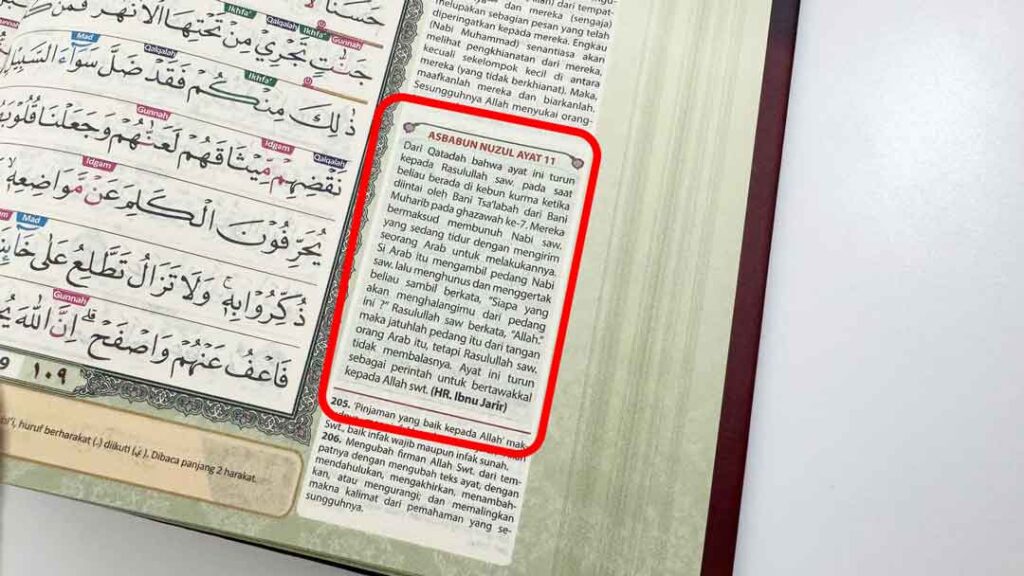 حَسَنًا
Ikhfa'
Qalqalah
Ikhfa'
Gunnah
جَنّٰتٍ تَجْرِيْ مِنْ تَحْتِهَا الْاَنْهٰرُ فَمَنْ
Mad
Qalqalah
Ikhfa'
ذٰلِكَ مِنْكُمْ فَقَدْ ضَلَّ سَوَاۤءَ السَّبِيْلِ
Gunnah
Idgam
Qalqalah
نَقْضِهِمْ مِّيْثَاقَهُمْ لَعَنّٰهُمْ وَجَعَلْنَا قُلُوْبَهُمْ
Idgam
يُحَرِّفُوْنَ الْكَلِمَ عَنْ مَّوَاضِعِهٖ
Mad
ذُكِّرُوْا بِهٖ وَلَا تَزَالُ تَطَّلِعُ عَلٰى
Gunnah
فَاعْفُ عَنْهُمْ وَاصْفَحْ اِنَّ اللّٰهَ
١٠٩
huruf berharakat (ـِ) diikuti (ي). Dibaca panjang 2 harakat.
dari tempat-
dan mereka (sengaja)
melupakan sebagian pesan yang telah
diperingatkan kepada mereka. Engkau
(Nabi Muhammad) senantiasa akan
melihat pengkhianatan dari mereka,
kecuali sekelompok kecil di antara
mereka (yang tidak berkhianat). Maka,
maafkanlah mereka dan biarkanlah.
Sesungguhnya Allah menyukai orang-
ASBABUN NUZUL AYAT 11
Dari Qatadah bahwa ayat ini turun
kepada Rasulullah saw. pada saat
beliau berada di kebun kurma ketika
diintai oleh Bani Tsa'labah dari Bani
Muharib pada ghazawah ke-7. Mereka
bermaksud membunuh Nabi saw.
yang sedang tidur dengan mengirim
seorang Arab untuk melakukannya.
Si Arab itu mengambil pedang Nabi
saw. lalu menghunus dan menggertak
beliau sambil berkata, "Siapa yang
akan menghalangimu dari pedang
ini ?" Rasulullah saw berkata, "Allah."
maka jatuhlah pedang itu dari tangan
orang Arab itu, tetapi Rasulullah saw.
tidak membalasnya. Ayat ini turun
sebagai perintah untuk bertawakkal
kepada Allah swt. (HR. Ibnu Jarir)
205. 'Pinjaman yang baik kepada Allah' mak-
Swt., baik infak wajib maupun infak sunah.
206. Mengubah firman Allah Swt. dari tem-
patnya dengan mengubah teks ayat, dengan
mendahulukan, mengakhirkan, menambah-
kan, atau mengurangi; dan memalingkan
makna kalimat dari pemahaman yang se-
sungguhnya.